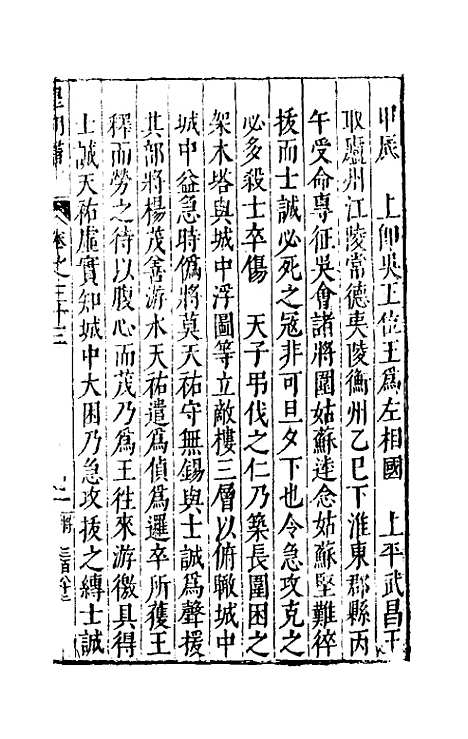 甲辰　上即吳王位王爲左相國　上平武昌王
取廬州江陵常德夷陵衡州乙巳下淮東郡縣丙
午受命專征吳會諸將圍姑蘇逵念姑蘇堅難猝
拔而士誠必死之冦非可旦夕下也令急攻克之
必多殺士卒傷　天子弔伐之仁乃築長圍困之
架木塔與城中浮圖等立敵樓三層以俯瞰城中
城中益急時僞將莫天祐守無錫與士誠爲聲援
其部將楊茂善游水天祐遣爲偵爲邏卒所獲王
釋而勞之待以腹心而茂乃爲王往來游徼具得
士誠天祐虛實知城中大困乃急攻拔之縳士誠
卷之三十三